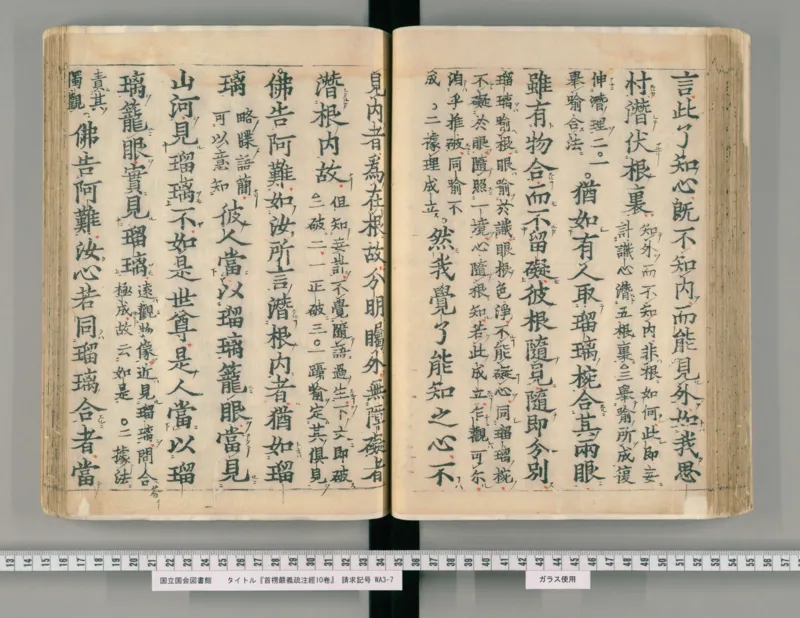 言此了知心既不知內而能見外如我思
村潛伏根裏
知外而不知內非根如何此即妄
計識心潛五根裏。三舉喻所成復
伸潛理二。一
舉喻合法
。猶如有人取瑠璃椀合其兩眼
雖有物合而不留礙彼根隨見隨即分別
瑠璃喻根眼喻於識眼根色淨不能礙心同瑠璃椀
不礙於眼隨照一境心隨根知若此成立乍觀可尔
洎乎推破同喻不
成。二據理成立
。然我覺了能知之心不
見內者爲在根故分明矚外無障礙者
潛根內故
但知妄計不覺隨語過生下文即破
。二破二。一正破三。一躡喻定其俱見
佛告阿難如汝所言潛根內者猶如瑠
璃
略牒語簡
可以意知
彼人當以瑠璃籠眼當見
山河見瑠璃不如是世尊是人當以瑠
璃籠眼實見瑠璃
遠觀物像近見瑠璃問合
極成故云如是。二據法
責其
獨觀
。佛告阿難汝心若同瑠璃合者當
13 14 15 16 17 18 19 20 21 22 23 24 25 26 27 28 29 30 31 32 33 34 35 36 37 38 39 40 41 42 43 44 45 46 47 48 49 50 51 52 53 54 55 56 57
国立国会図書館 タイトル『首楞嚴義疏注經10巻』 請求記号 WA3-7
ガラス使用